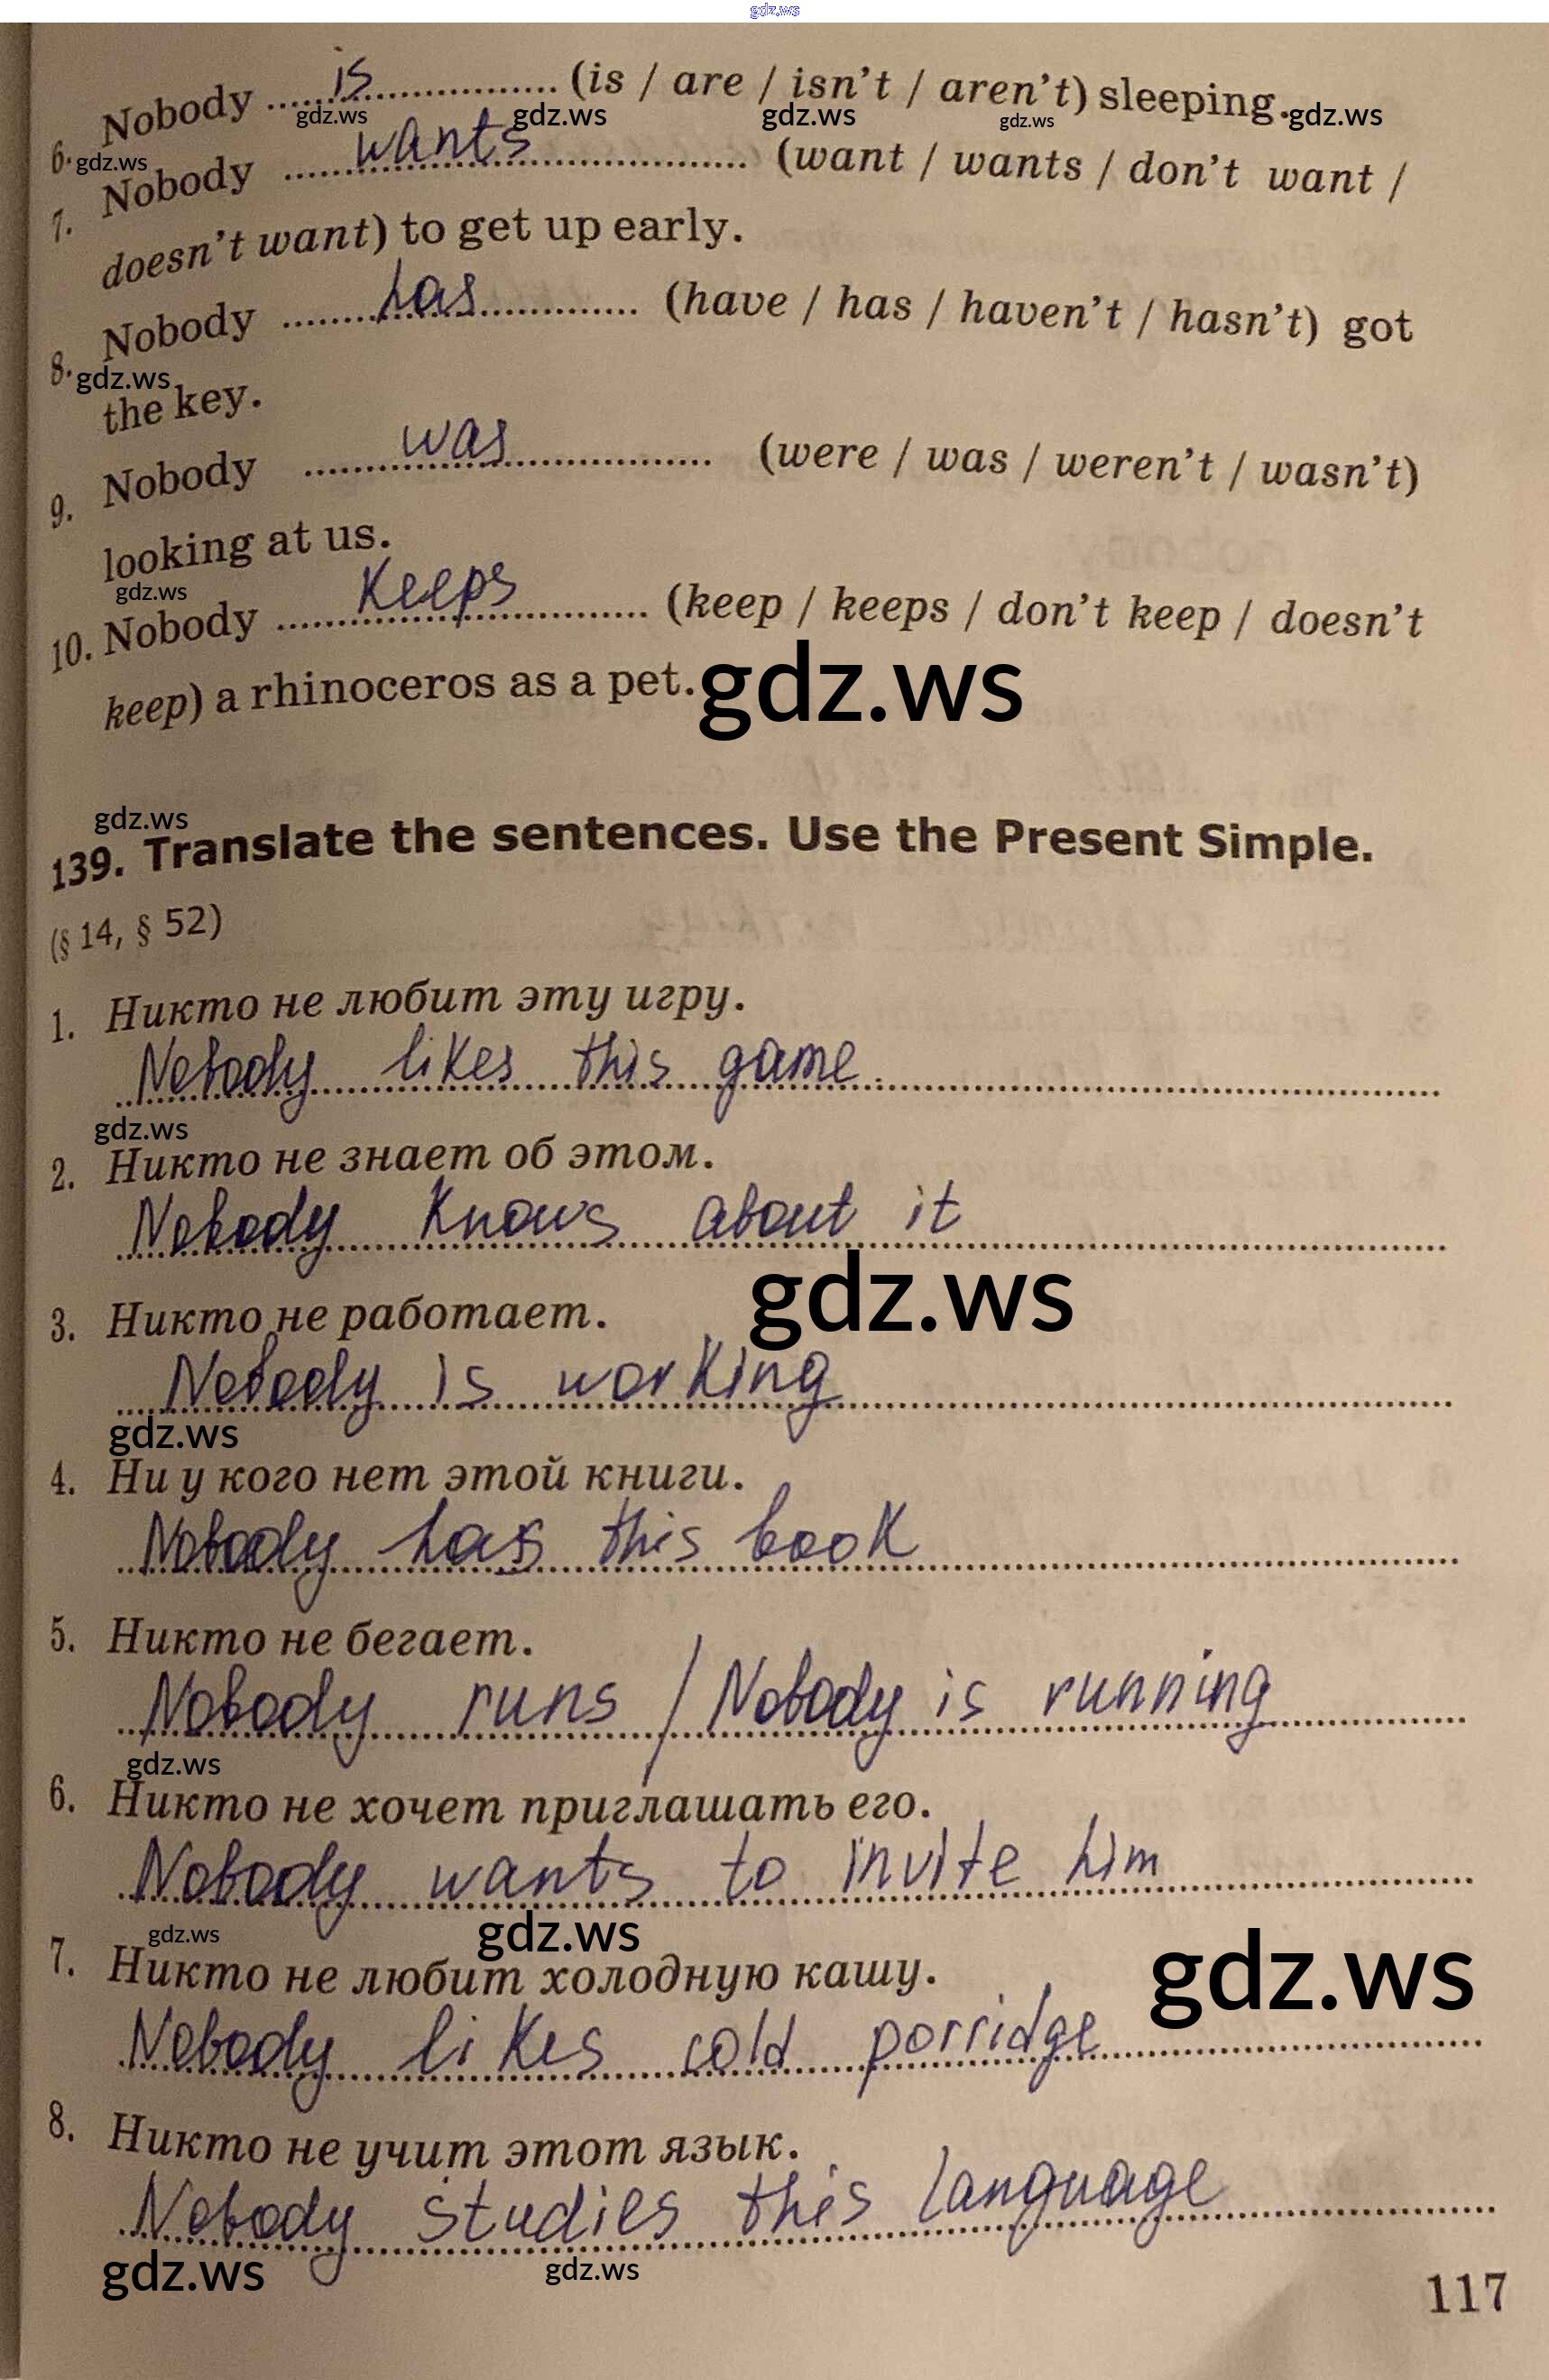 gdz.ws
6. Nobody is (is / are / isn't / aren't) sleeping.
gdz.ws gdz.ws gdz.ws gdz.ws gdz.ws
gdz.ws
7. Nobody wants (want / wants / don't want /
doesn't want) to get up early.
8. Nobody has (have / has / haven't / hasn't) got
gdz.ws
the key.
9. Nobody was (were / was / weren't / wasn't)
looking at us.
gdz.ws
10. Nobody keeps (keep / keeps / don't keep / doesn't
keep) a rhinoceros as a pet.
gdz.ws
gdz.ws
139. Translate the sentences. Use the Present Simple.
(§ 14, § 52)
1. Никто не любит эту игру.
Nobody likes this game.
gdz.ws
2. Никто не знает об этом.
Nobody knows about it
gdz.ws
3. Никто не работает.
Nobody is working
gdz.ws
4. Ни у кого нет этой книги.
Nobody has this book
5. Никто не бегает.
Nobody runs / Nobody is running
gdz.ws
6. Никто не хочет приглашать его.
Nobody wants to invite him
gdz.ws gdz.ws gdz.ws
7. Никто не любит холодную кашу.
Nobody likes cold porridge
8. Никто не учит этот язык.
Nobody studies this language
gdz.ws gdz.ws
117